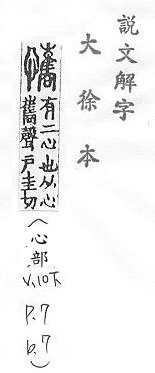 説文解字
大徐本
懏 有二心也从心
巂聲戶圭切
(心部
V.10下
P.7
b.7)